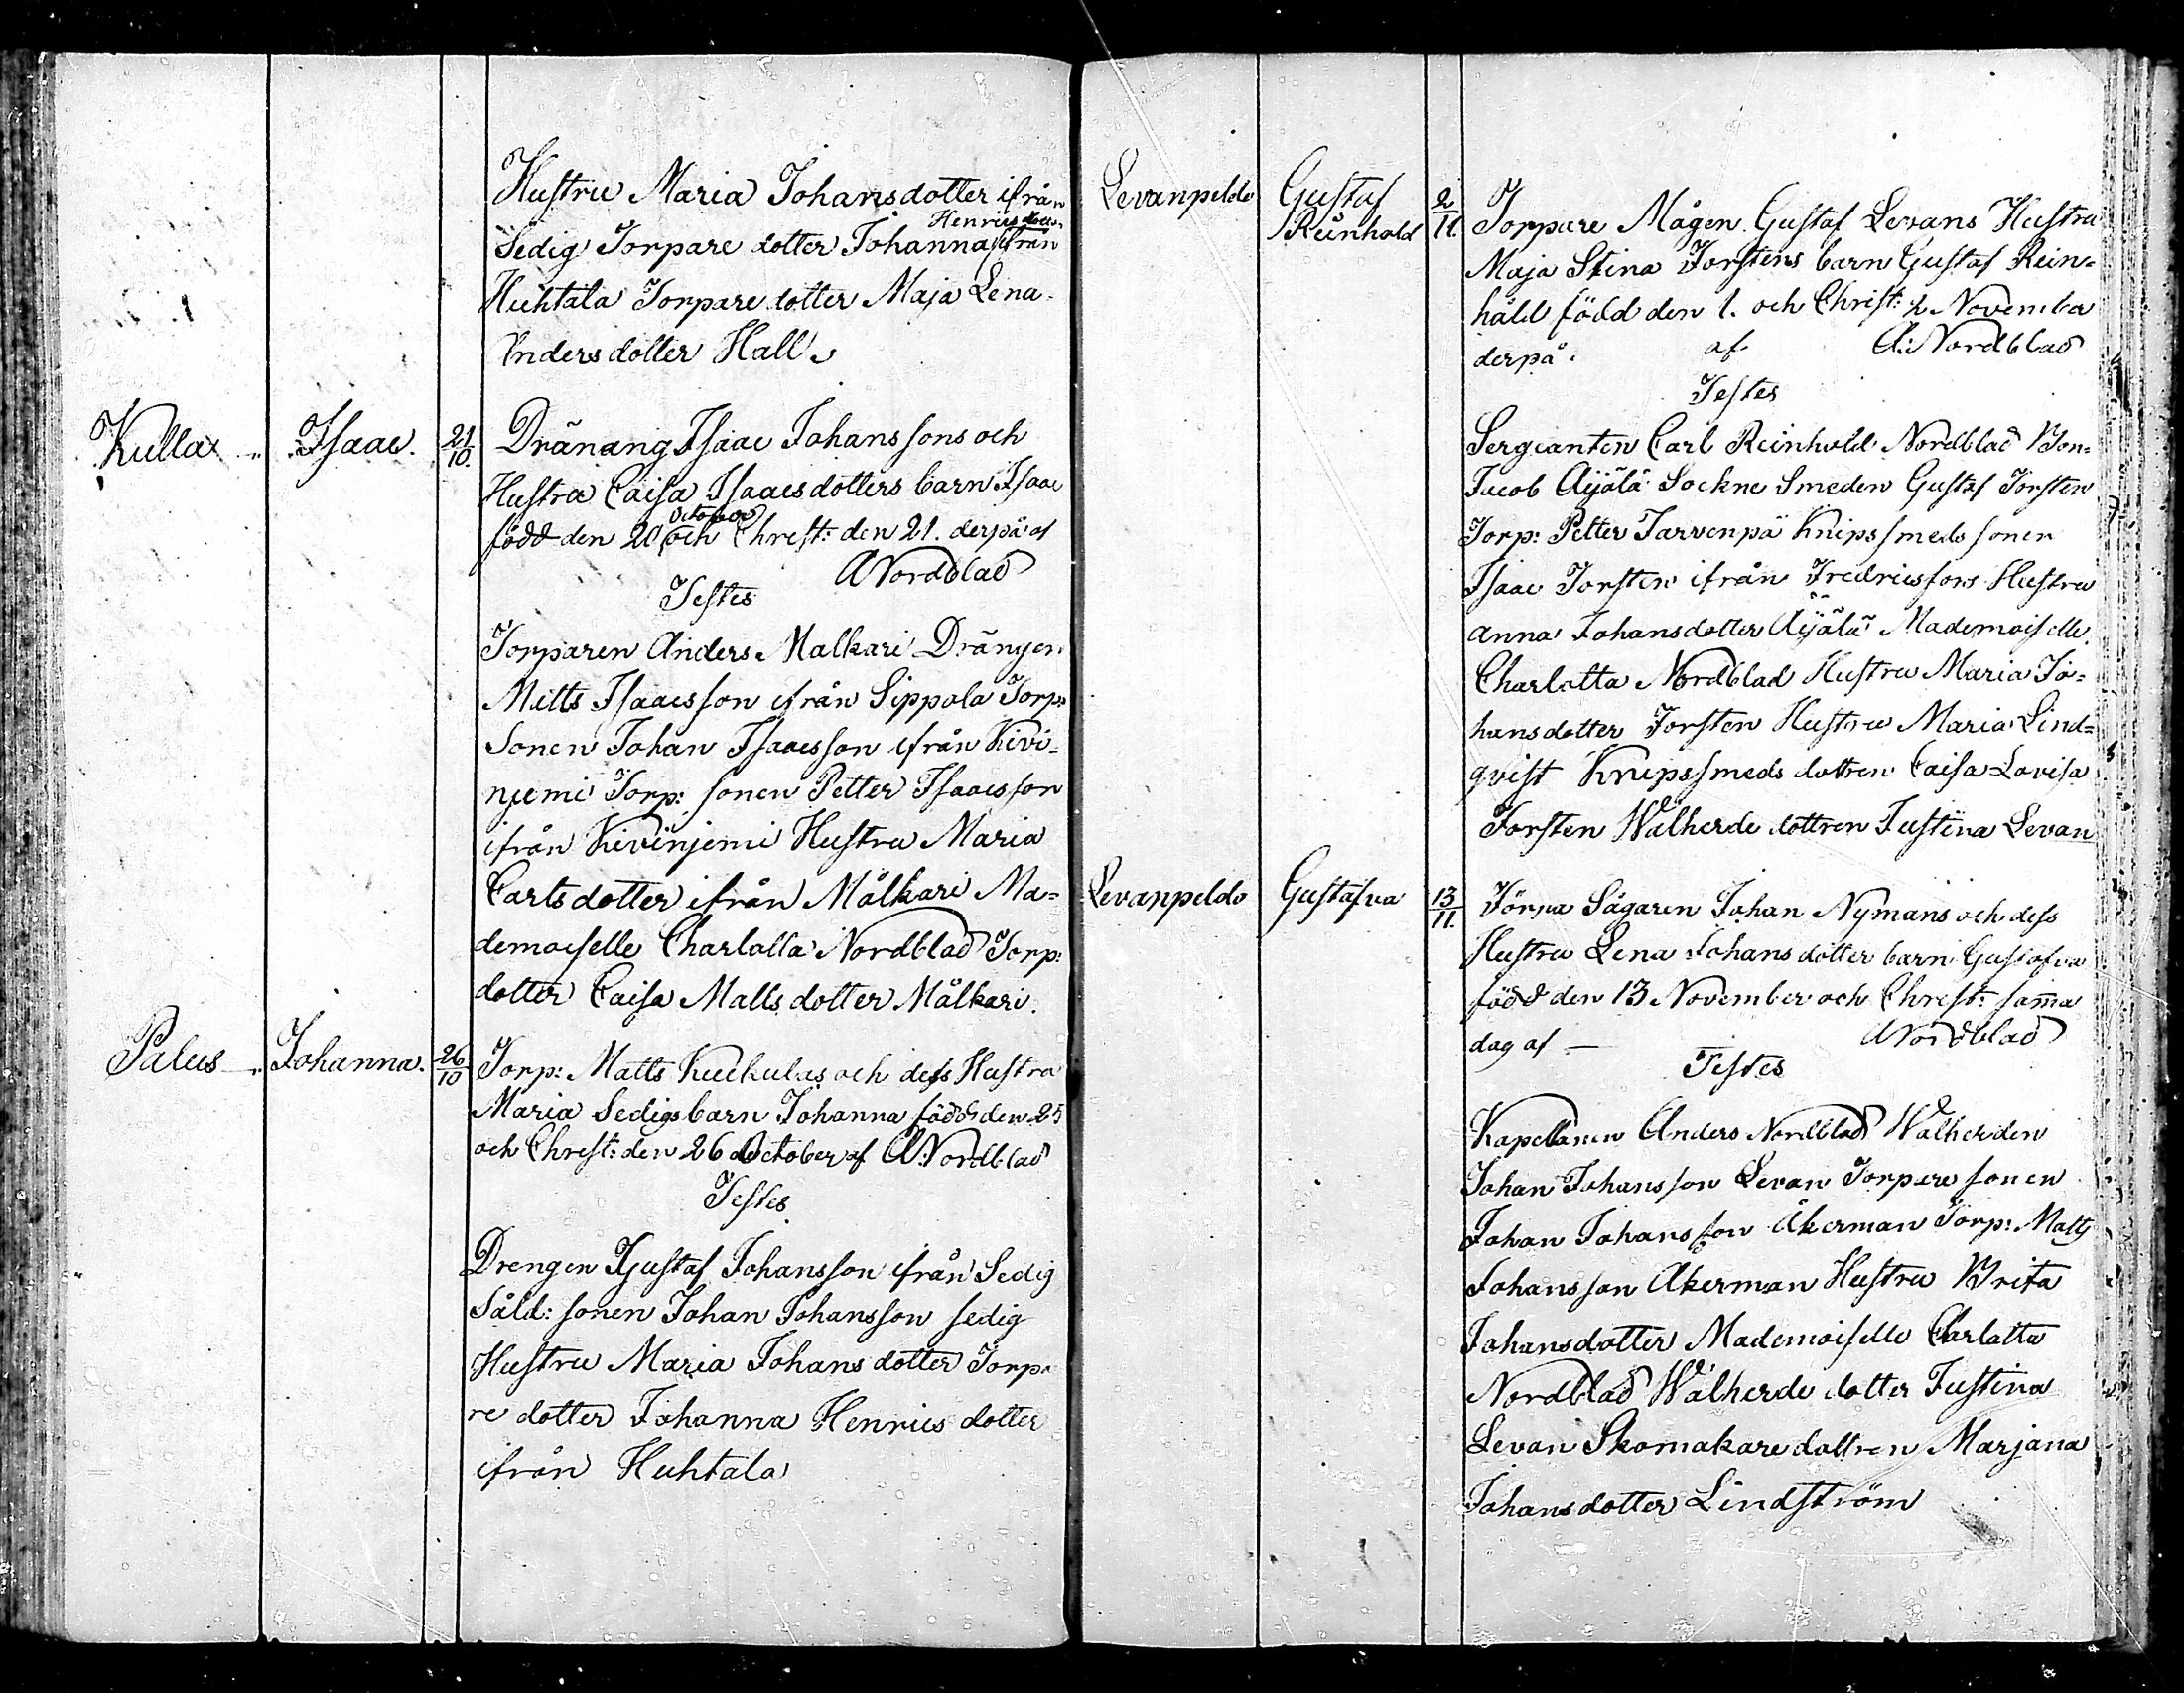 Hustru Maria Johansdotter ifrån
Henrics dotter
Sedig Torpare dotter Johanna ifrån
Huhtala Torpare dotter Maja Lena
Anders dotter Hall
Kulla Isaac. 21/10. Dränang Isaac Johanssons och
Hustru Caisa Isaacsdotters barn Isaac
October
född den 20 och Christ: den 21. derpå af
A Nordblad
Testes
Torparen Anders Malkari Drängen
Matts Isaacsson ifrån Sippola Torp:
Sonen Johan Isaacsson ifrån Kivi=
njemi Torp: sonen Petter Isaacsson
ifrån Kivinjemi Hustru Maria
Carlsdotter ifrån Målkari Ma=
demoiselle Charlotta Nordblad Torp:
dotter Caisa Matts dotter Målkari.
Palus Johanna. 26/10 Torp: Matts Kuckulas och dess Hustru
Maria Sedigs barn Johanna född den 25
och Christ: den 26 October af A: Nordblad
Testes
Drengen Gustaf Johansson ifrån Sedig
Såld: sonen Johan Johansson sedig
Hustru Maria Johans dotter Torpa
re dotter Johanna Henrics dotter
ifrån Huhtala
Levanpeldo Gustaf Reinhold 2/11. Torpare Mågen Gustaf Levans Hustru
Maja Stina Forstens barn Gustaf Rein=
håld född den 1. och Christ: 2 November
derpå. af A: Nordblad
Testes
Sergeanten Carl Reinhold Nordblad Bon:
Jacob Äijälä Sockne Smeden Gustaf Forsten
Torp: Petter Tarvenpä Knipssmeds sonen
Isaac Forsten ifrån Fredricsfors Hustru
Anna Johansdotter Äijälä Mademoiselle
Charlotta Nordblad Hustru Maria Jo=
hansdotter Forsten Hustru Maria Lind=
qvist Knipssmeds dottren Caisa Lovisa
Forsten Walherde dottren Justina Levan
Levanpeldo Gustafva 13/11. Förra Sågaren Johan Nymans och dess
Hustru Lena Johans dotter barn Gustafva
född den 13 November och Christ: sam̄a
dag af — A Nordblad
Testes
Kapellanen Anders Nordblad Walherden
Johan Johansson Levan Torpare sonen
Johan Johansson Åkerman Torp: Matts
Johansson Åkerman Hustru Brita
Johansdotter Mademoiselle Charlatta
Nordblad Walherde dotter Justina
Levan Skomakare dottren Marjana
Johansdotter Lindström